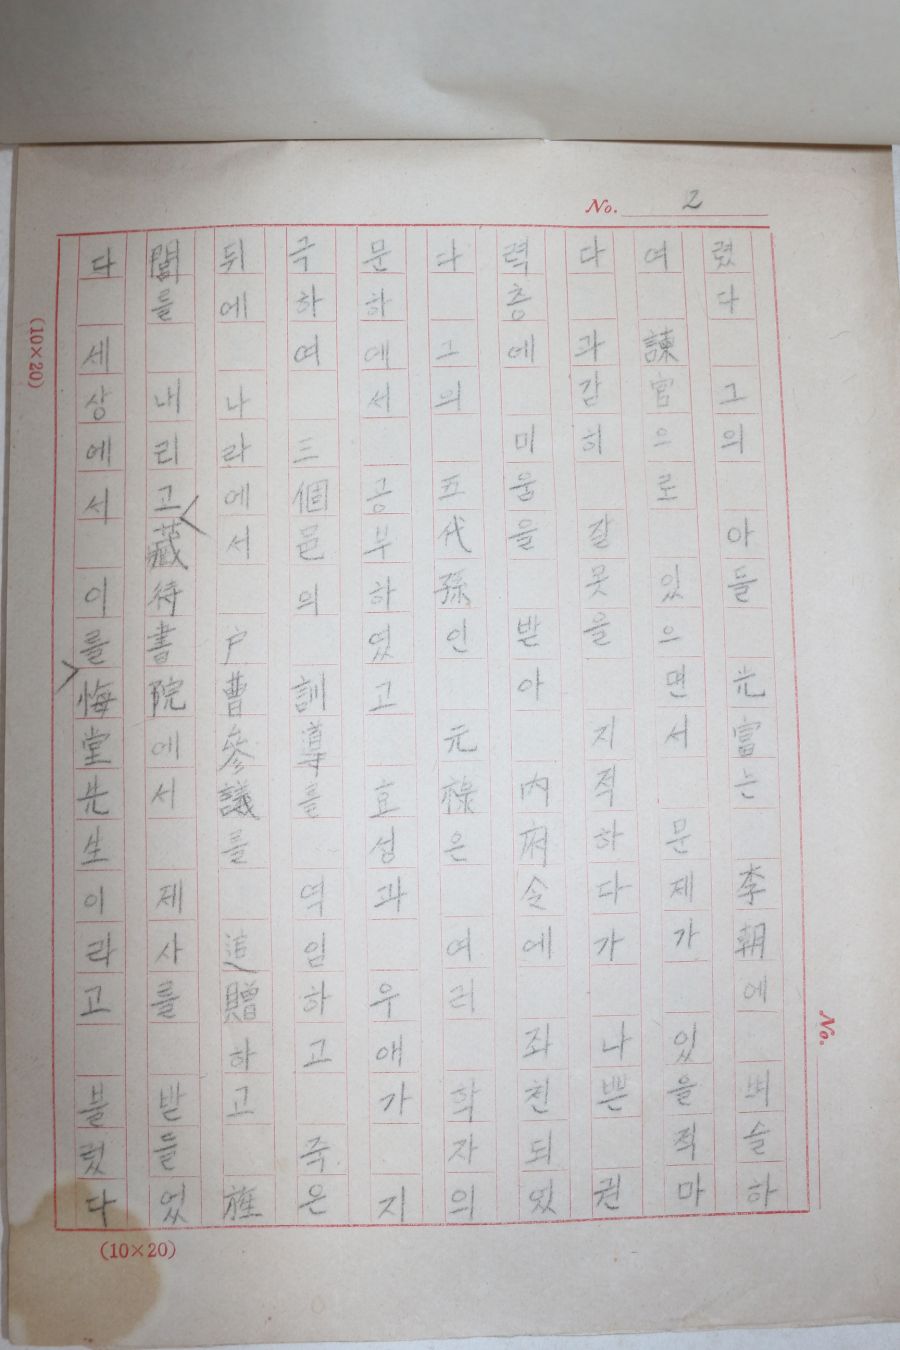 No. 2
렸다 그의 아들 光富는 李朝에 벼슬하
여 諫官으로 있으면서 문제가 있을 적마
다 과감히 잘못을 지적하다가 나쁜 권
력층에 미움을 받아 內府令에 좌천되었
다 그의 五代孫인 元祿은 여러 학자의
문하에서 공부하였고 효성과 우애가 지
극하여 三個邑의 訓導를 역임하고 죽은
뒤에 나라에서 戶曹參議를 追贈하고 旌
閭를 내리고 藏待書院에서 제사를 받들었
다 세상에서 이를 悔堂先生이라고 불렀다
(10×20)
(10×20)
No.